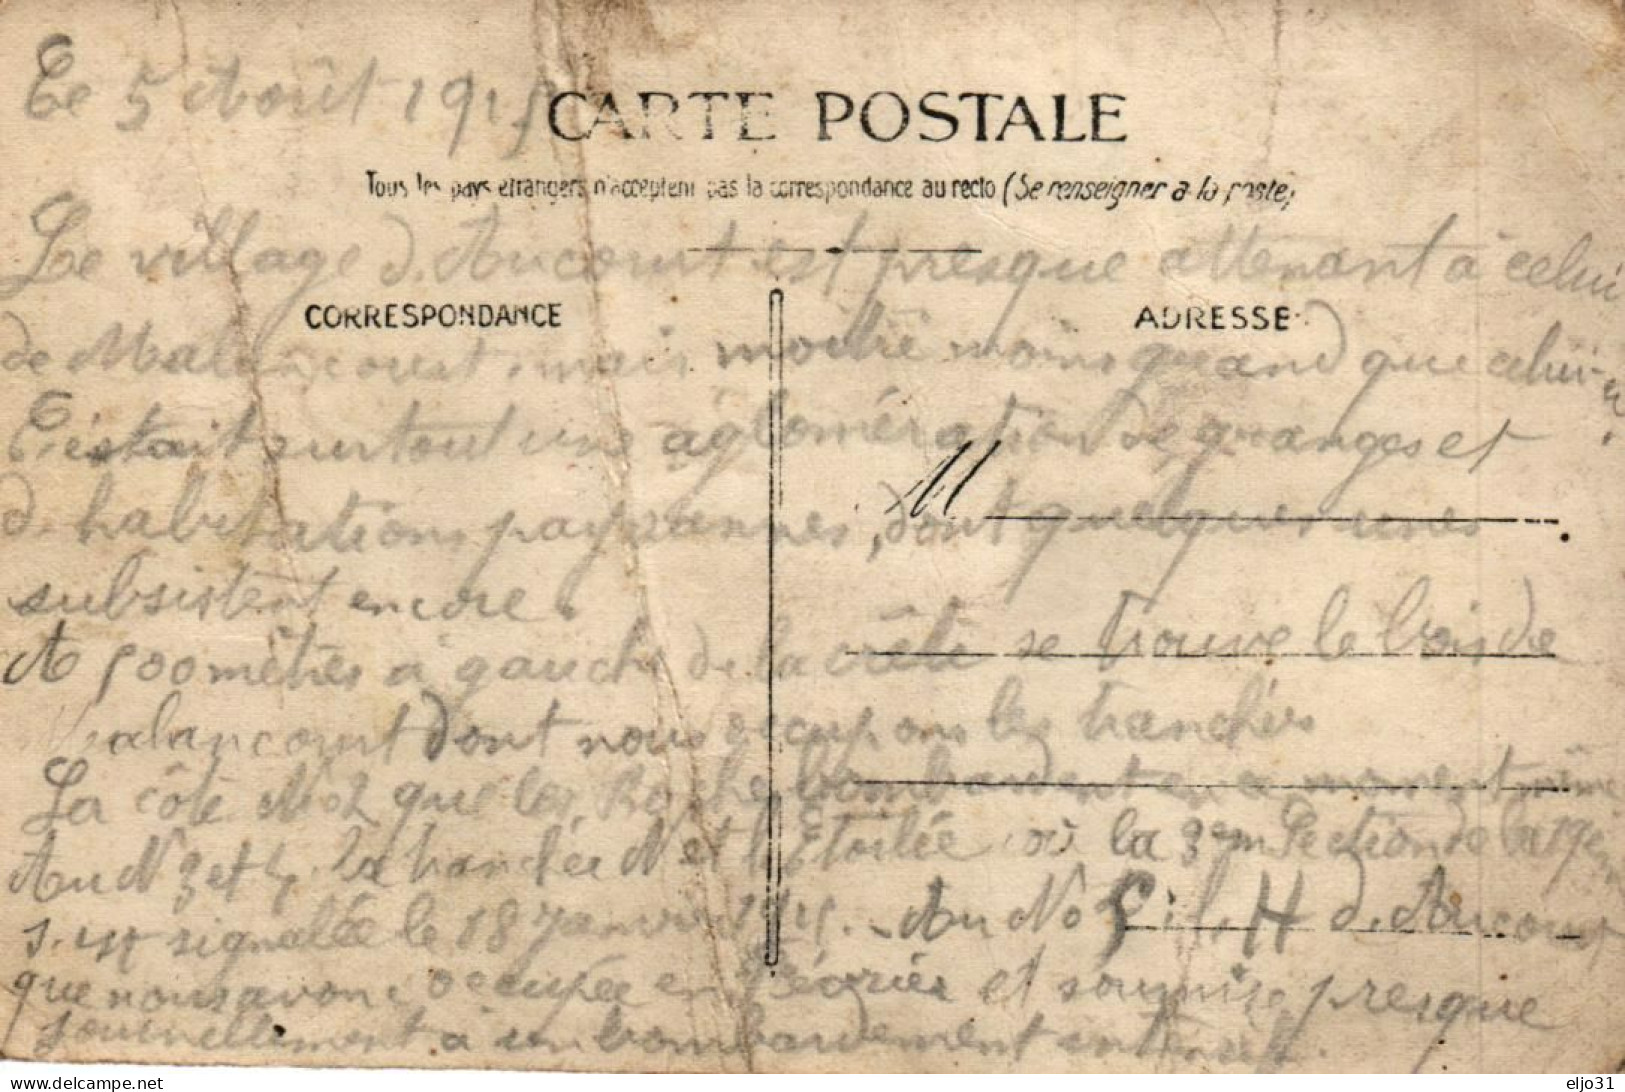 Le 5 Août 1915
CARTE POSTALE
Tous les pays étrangers n'acceptent pas la correspondance au recto (Se renseigner à la poste)
Le village d'Aucourt est presque attenant à celui
CORRESPONDANCE
ADRESSE
de Malancourt, mais moitié moins grand que celui-ci.
C'était surtout une aglomération de granges et
M
d'habitations paysannes, dont quelques unes
subsistent encore.
A 500 mètres à gauche de la crête se trouve le bois de
Malancourt dont nous occupons les tranchées
La côte N 2 que les Boches bombardent en ce moment même
Au N 3 et 4. la tranchée N et l'Etoilée où la 3em Section de la 19em
s'est signalée le 18 Janvier 1915. - Au No 5 il. H d'Aucourt
que nous avons occupée en Février et soumise presque
journellement à un bombardement intense.
delcampe.net
eljo31